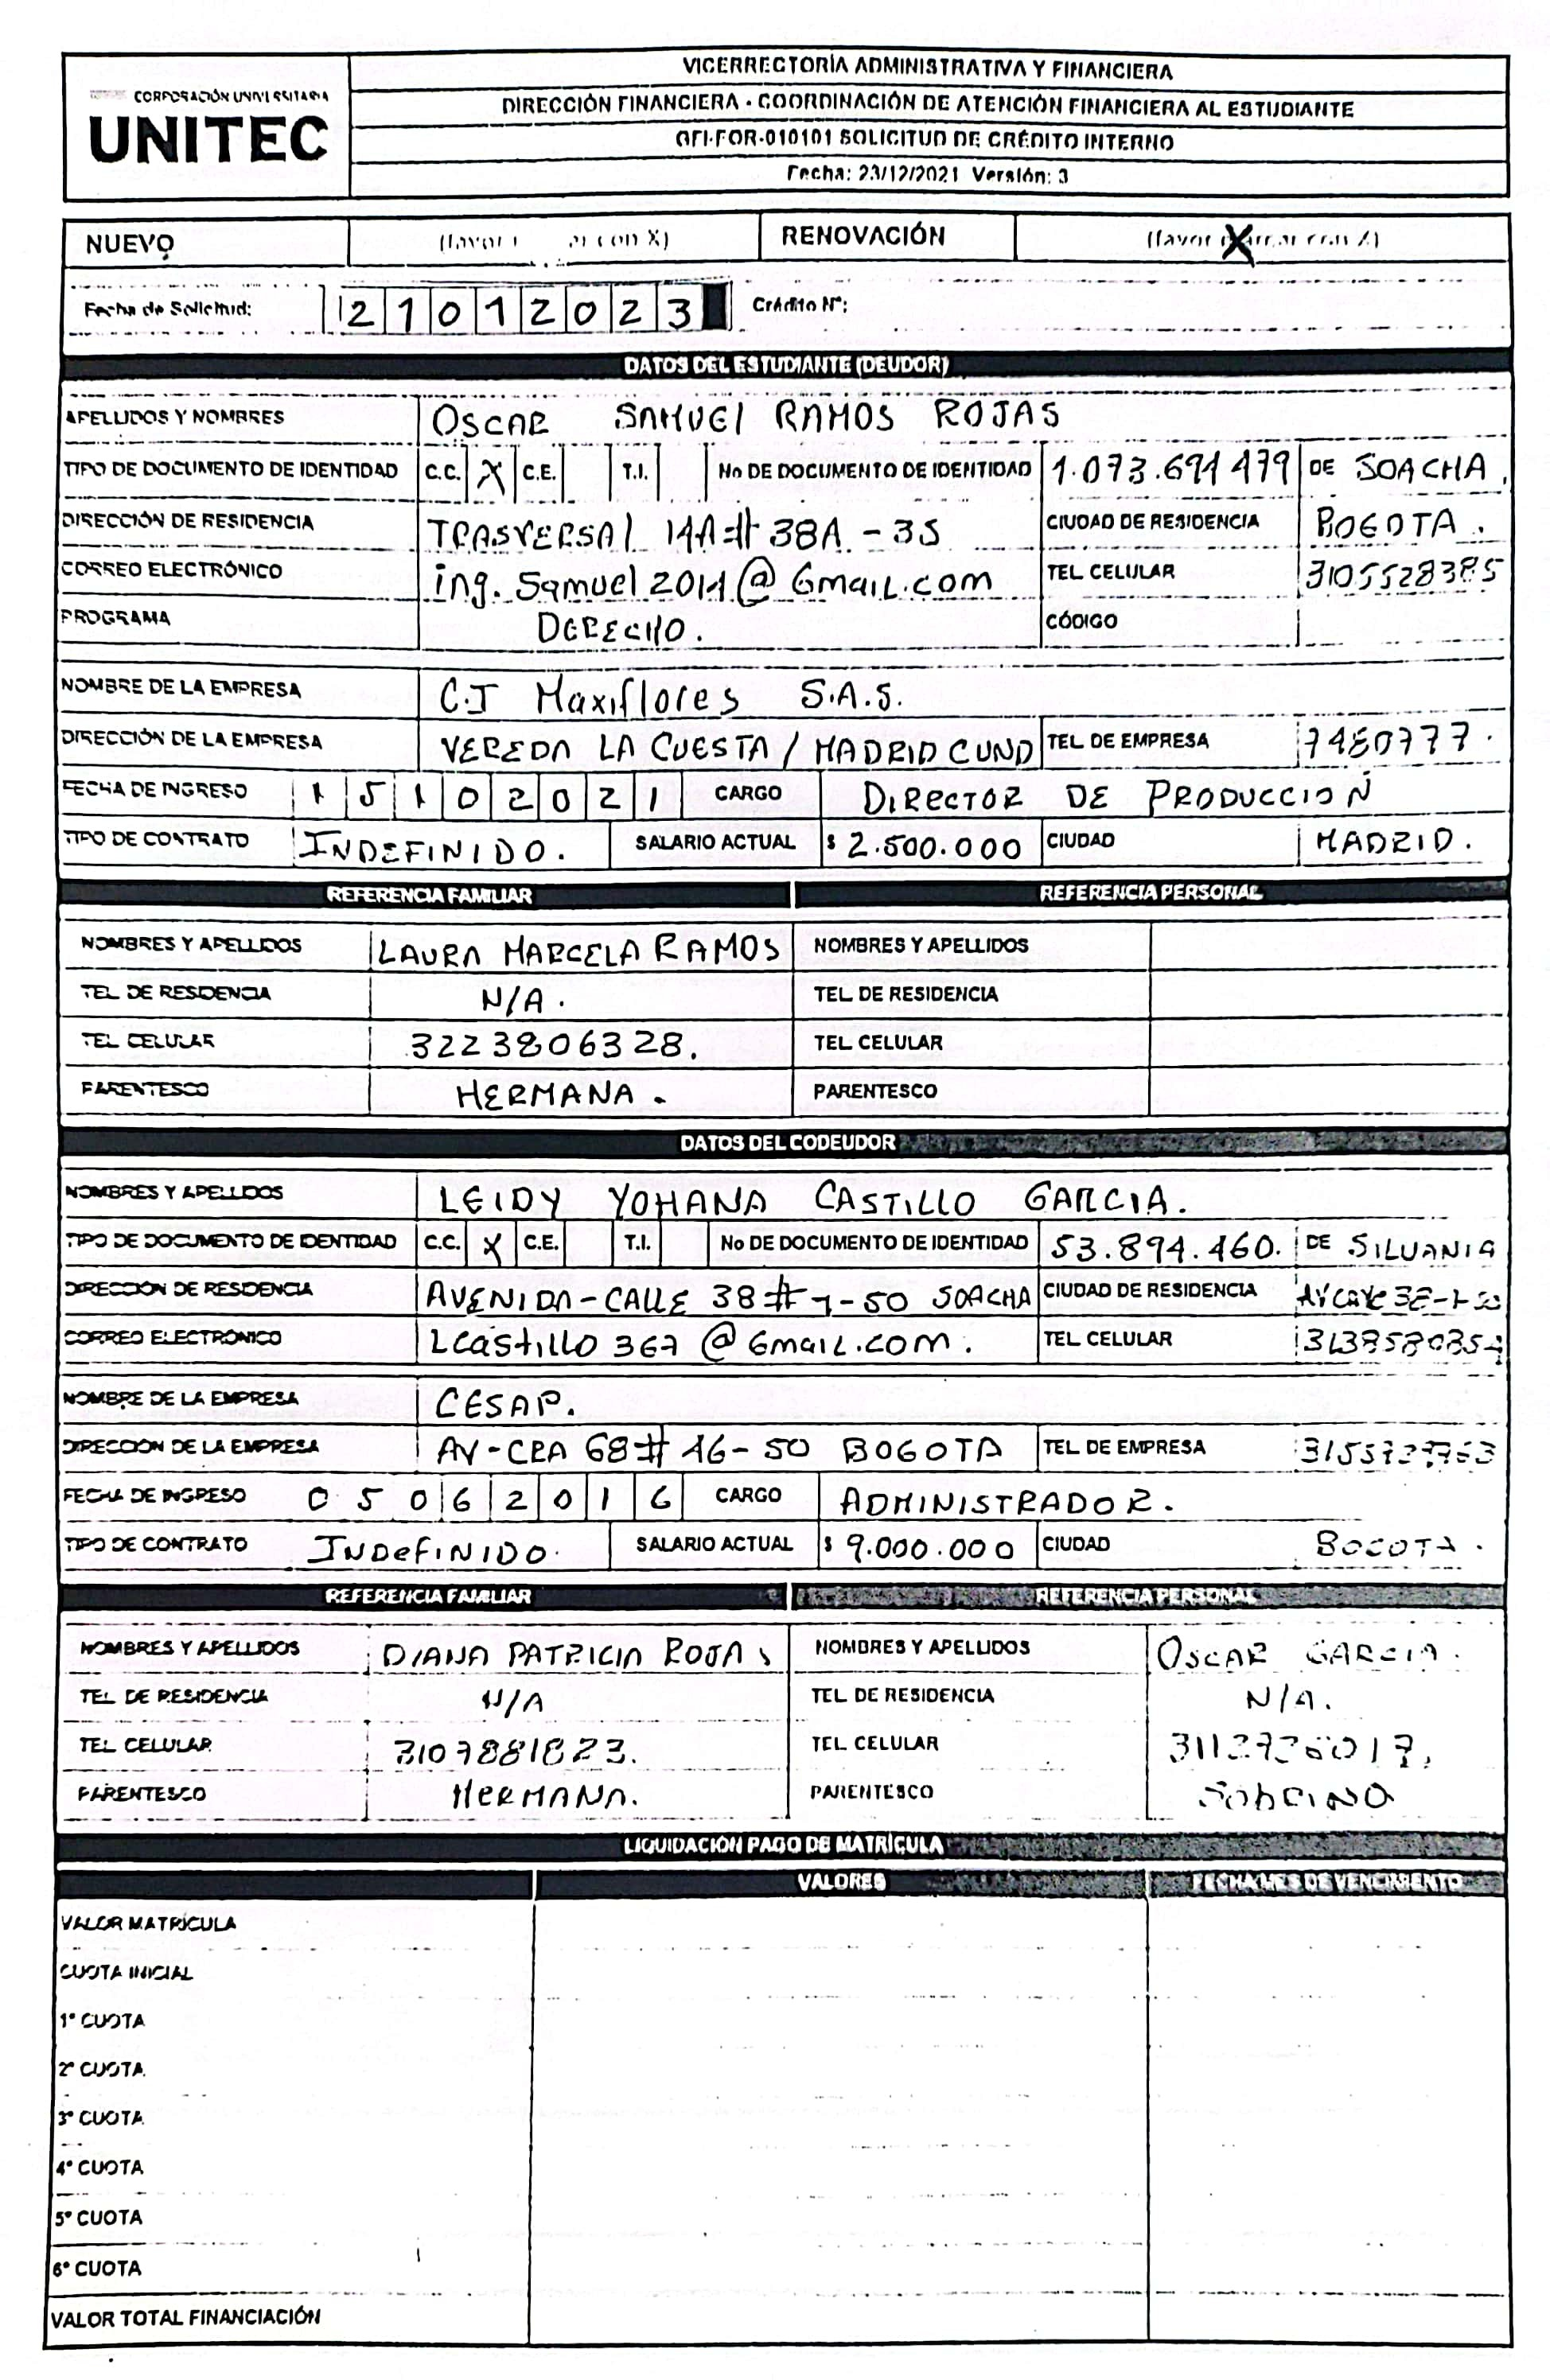 CORPORACIÓN UNIVERSITARIA
UNITEC
VICERRECTORÍA ADMINISTRATIVA Y FINANCIERA
DIRECCIÓN FINANCIERA - COORDINACIÓN DE ATENCIÓN FINANCIERA AL ESTUDIANTE
GFI-FOR-010101 SOLICITUD DE CRÉDITO INTERNO
Fecha: 23/12/2021 Versión: 3
NUEVO (favor con X) RENOVACIÓN (favor marcar con X) X
Fecha de Solicitud: 2 1 0 1 2 0 2 3 Crédito N°:
DATOS DEL ESTUDIANTE (DEUDOR)
APELLIDOS Y NOMBRES OSCAR SAMUEL RAMOS ROJAS
TIPO DE DOCUMENTO DE IDENTIDAD C.C. X C.E. T.I. No DE DOCUMENTO DE IDENTIDAD 1.073.691479 DE SOACHA.
DIRECCIÓN DE RESIDENCIA TRASVERSAL 14A # 38A - 35 CIUDAD DE RESIDENCIA BOGOTA.
CORREO ELECTRÓNICO ing.Samuel2014@Gmail.com TEL CELULAR 3105528385
PROGRAMA DERECHO. CÓDIGO
NOMBRE DE LA EMPRESA C.I Maxiflores S.A.S.
DIRECCIÓN DE LA EMPRESA VEREDA LA CUESTA / MADRID CUND TEL DE EMPRESA 7480777.
FECHA DE INGRESO 1 5 1 0 2 0 2 1 CARGO DIRECTOR DE PRODUCCION
TIPO DE CONTRATO INDEFINIDO. SALARIO ACTUAL $ 2.500.000 CIUDAD MADRID.
REFERENCIA FAMILIAR REFERENCIA PERSONAL
NOMBRES Y APELLIDOS LAURA MARCELA RAMOS NOMBRES Y APELLIDOS
TEL DE RESIDENCIA N/A. TEL DE RESIDENCIA
TEL CELULAR 3223806328. TEL CELULAR
PARENTESCO HERMANA. PARENTESCO
DATOS DEL CODEUDOR
NOMBRES Y APELLIDOS LEIDY YOHANA CASTILLO GARCIA.
TIPO DE DOCUMENTO DE IDENTIDAD C.C. X C.E. T.I. No DE DOCUMENTO DE IDENTIDAD 53.894.460. DE SILVANIA
DIRECCIÓN DE RESIDENCIA AVENIDA-CALLE 38 # 1-50 SOACHA CIUDAD DE RESIDENCIA
CORREO ELECTRÓNICO Lcastillo367@Gmail.com. TEL CELULAR
NOMBRE DE LA EMPRESA CESAP.
DIRECCIÓN DE LA EMPRESA AV-CRA 68 # 46-50 BOGOTA TEL DE EMPRESA
FECHA DE INGRESO 0 5 0 6 2 0 1 6 CARGO ADMINISTRADOR.
TIPO DE CONTRATO INDEFINIDO. SALARIO ACTUAL $ 9.000.000 CIUDAD BOGOTA.
REFERENCIA FAMILIAR REFERENCIA PERSONAL
NOMBRES Y APELLIDOS DIANA PATRICIA ROJAS NOMBRES Y APELLIDOS OSCAR GARCIA.
TEL DE RESIDENCIA N/A TEL DE RESIDENCIA N/A.
TEL CELULAR 3107881823. TEL CELULAR
PARENTESCO HERMANA. PARENTESCO SobRINO
LIQUIDACIÓN PAGO DE MATRÍCULA
VALORES FECHA/MES DE VENCIMIENTO
VALOR MATRÍCULA
CUOTA INICIAL
1° CUOTA
2° CUOTA
3° CUOTA
4° CUOTA
5° CUOTA
6° CUOTA
VALOR TOTAL FINANCIACIÓN